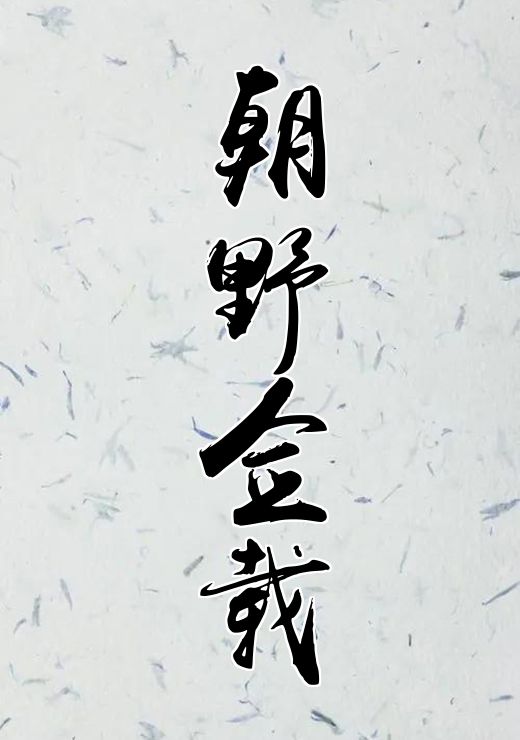 朝野佥载